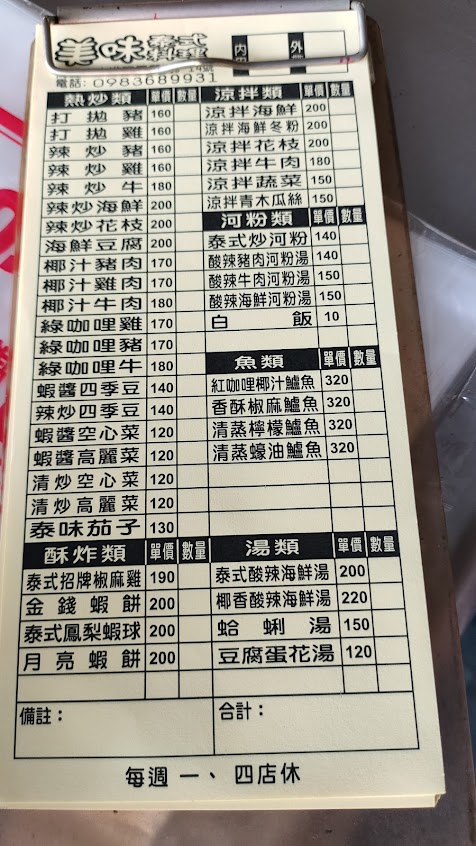 美味泰式
內
外
電話:0983689931
熱炒類 單價 數量
打拋豬 160
打拋雞 160
辣炒豬 160
辣炒雞 160
辣炒牛 180
辣炒海鮮 200
辣炒花枝 200
海鮮豆腐 200
椰汁豬肉 170
椰汁雞肉 170
椰汁牛肉 180
綠咖哩雞 170
綠咖哩豬 170
綠咖哩牛 180
蝦醬四季豆 140
辣炒四季豆 140
蝦醬空心菜 120
蝦醬高麗菜 120
清炒空心菜 120
清炒高麗菜 120
泰味茄子 130
酥炸類 單價 數量
泰式招牌椒麻雞 190
金錢蝦餅 200
泰式鳳梨蝦球 200
月亮蝦餅 200
涼拌類 單價 數量
涼拌海鮮 200
涼拌海鮮冬粉 200
涼拌花枝 200
涼拌牛肉 180
涼拌蔬菜 150
涼拌青木瓜絲 150
河粉類 單價 數量
泰式炒河粉 140
酸辣豬肉河粉湯 140
酸辣牛肉河粉湯 150
酸辣海鮮河粉湯 150
白飯 10
魚類 單價 數量
紅咖哩椰汁鱸魚 320
香酥椒麻鱸魚 320
清蒸檸檬鱸魚 320
清蒸蠔油鱸魚 320
湯類 單價 數量
泰式酸辣海鮮湯 200
椰香酸辣海鮮湯 220
蛤蜊湯 150
豆腐蛋花湯 120
備註:
合計:
每週一、四店休